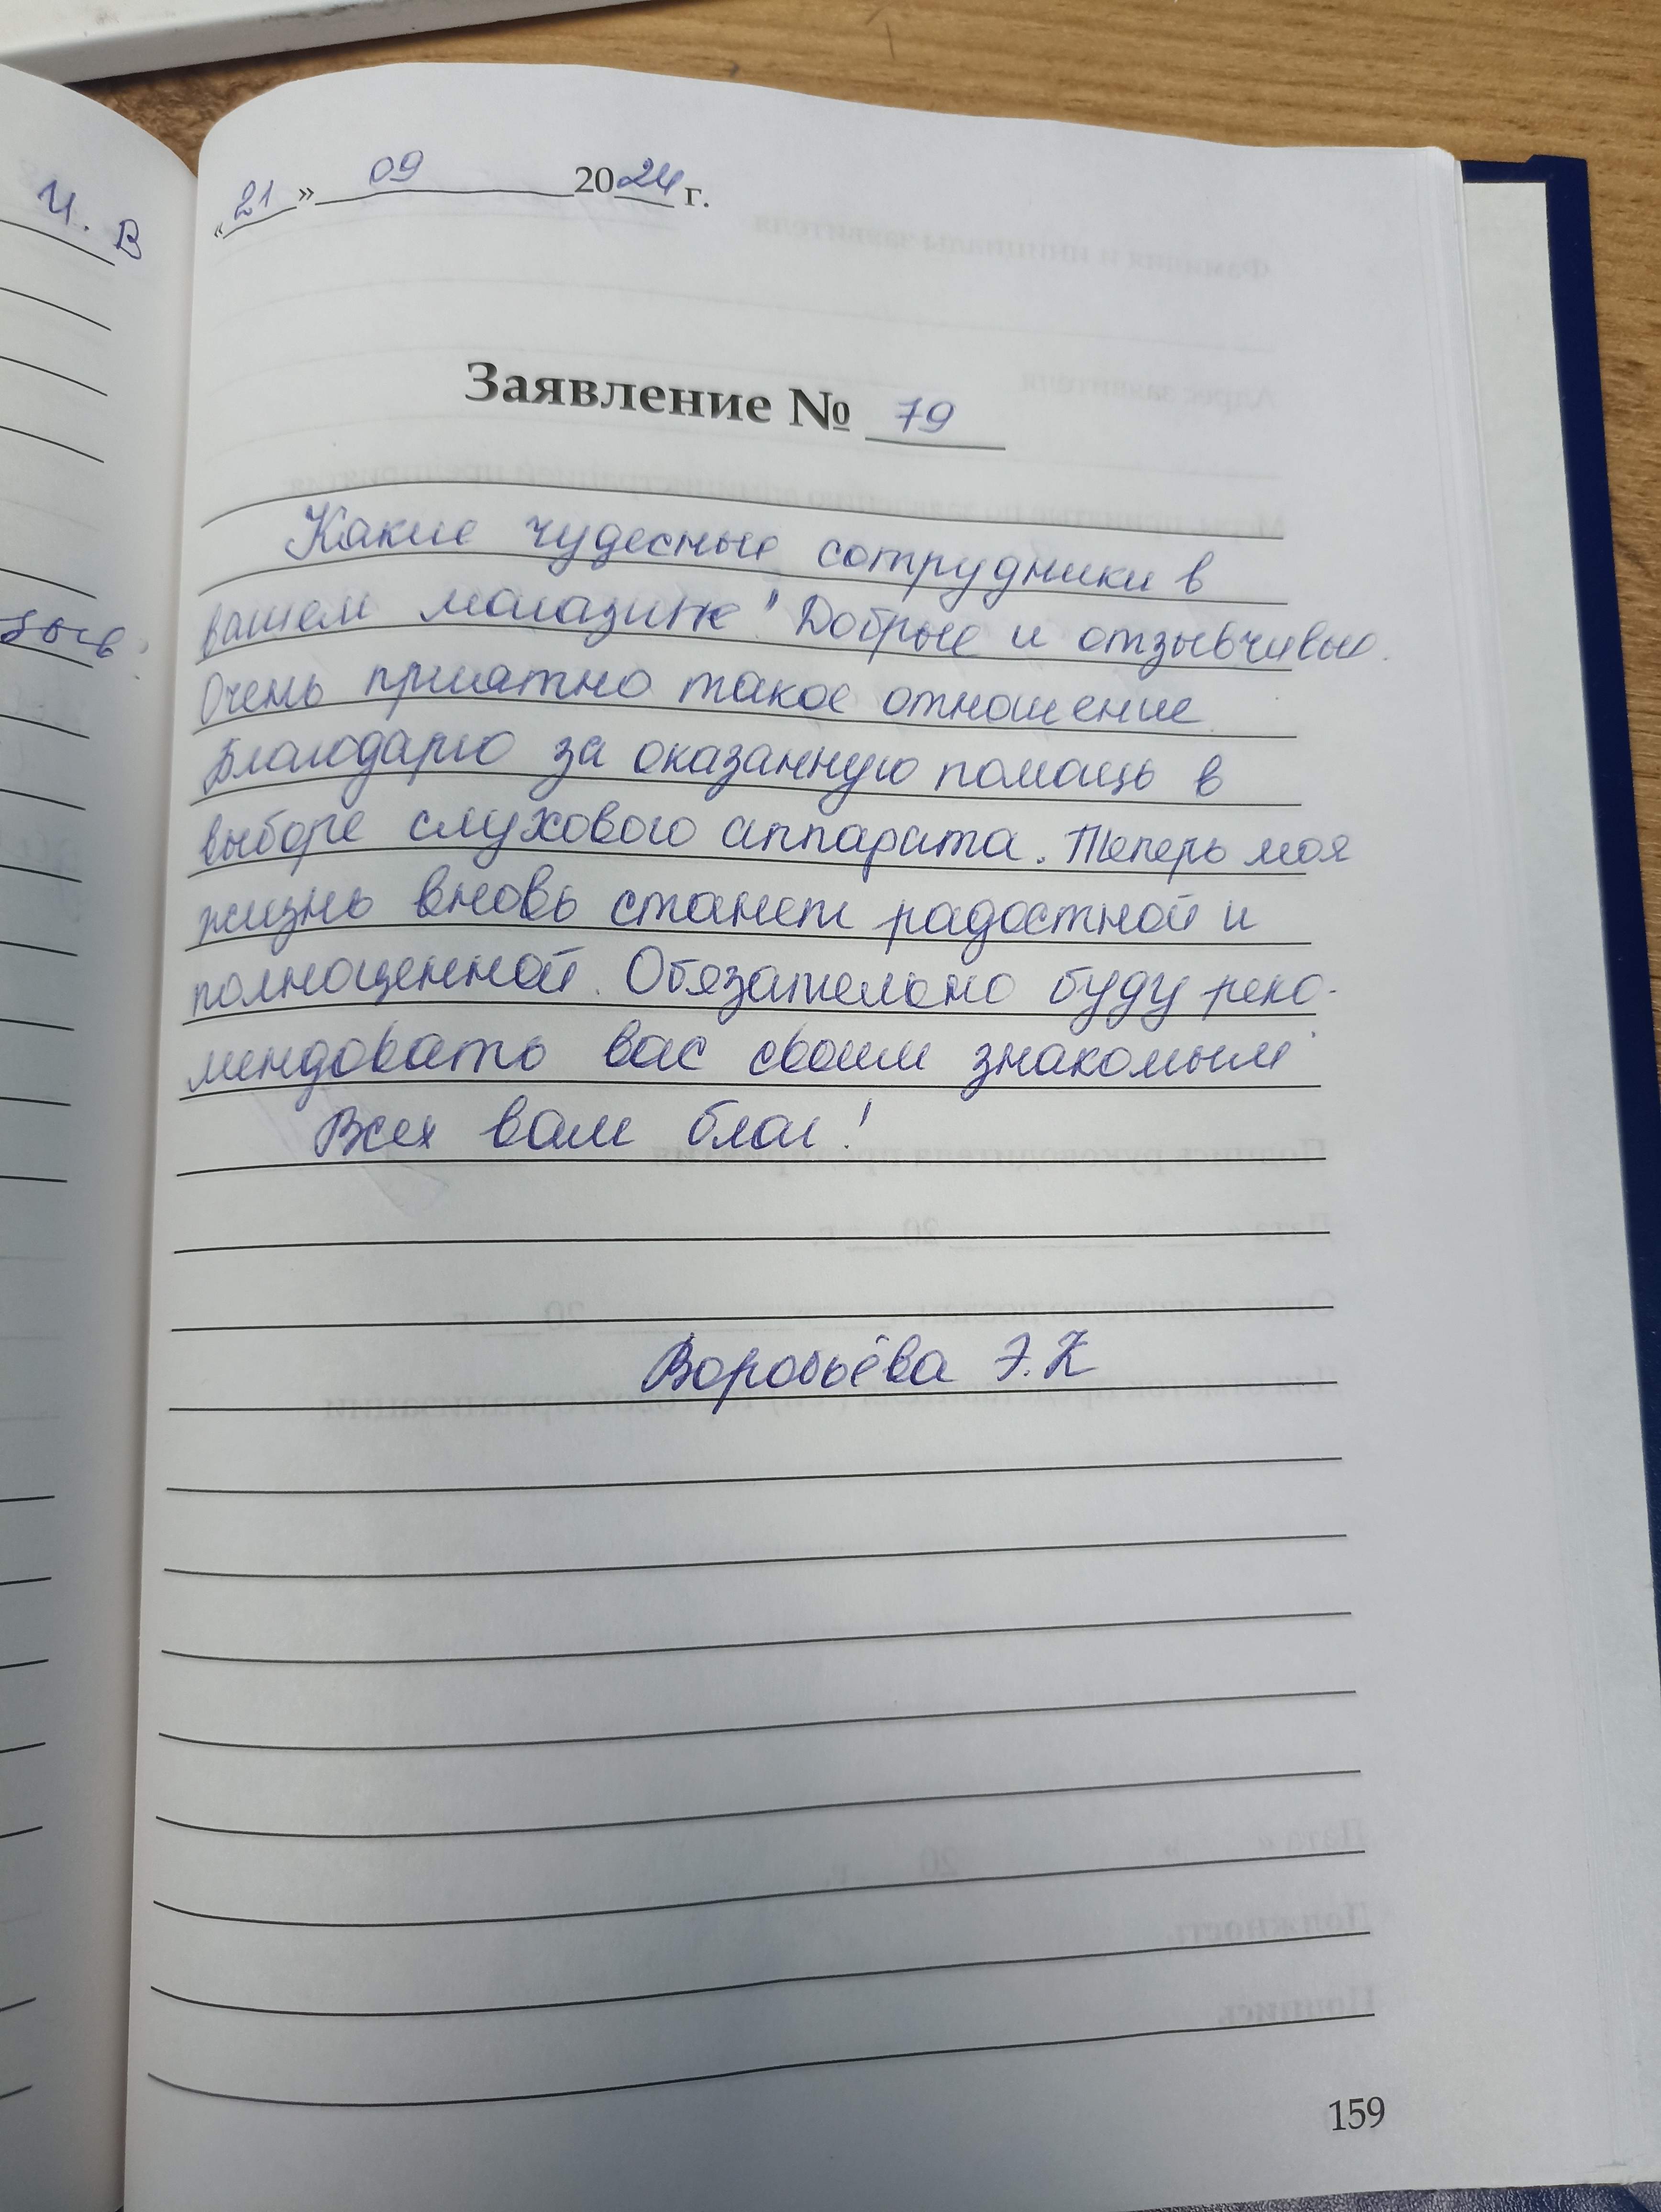 И. В
зыв.
«21» 09 2024 г.
Заявление № 79
Какие чудесные сотрудники в
вашем магазине! Добрые и отзывчивые.
Очень приятно такое отношение.
Благодарю за оказанную помощь в
выборе слухового аппарата. Теперь моя
жизнь вновь станет радостной и
полноценной. Обязательно буду реко-
мендовать вас своим знакомым.
Всех вам благ!
Воробьёва Э.К
159